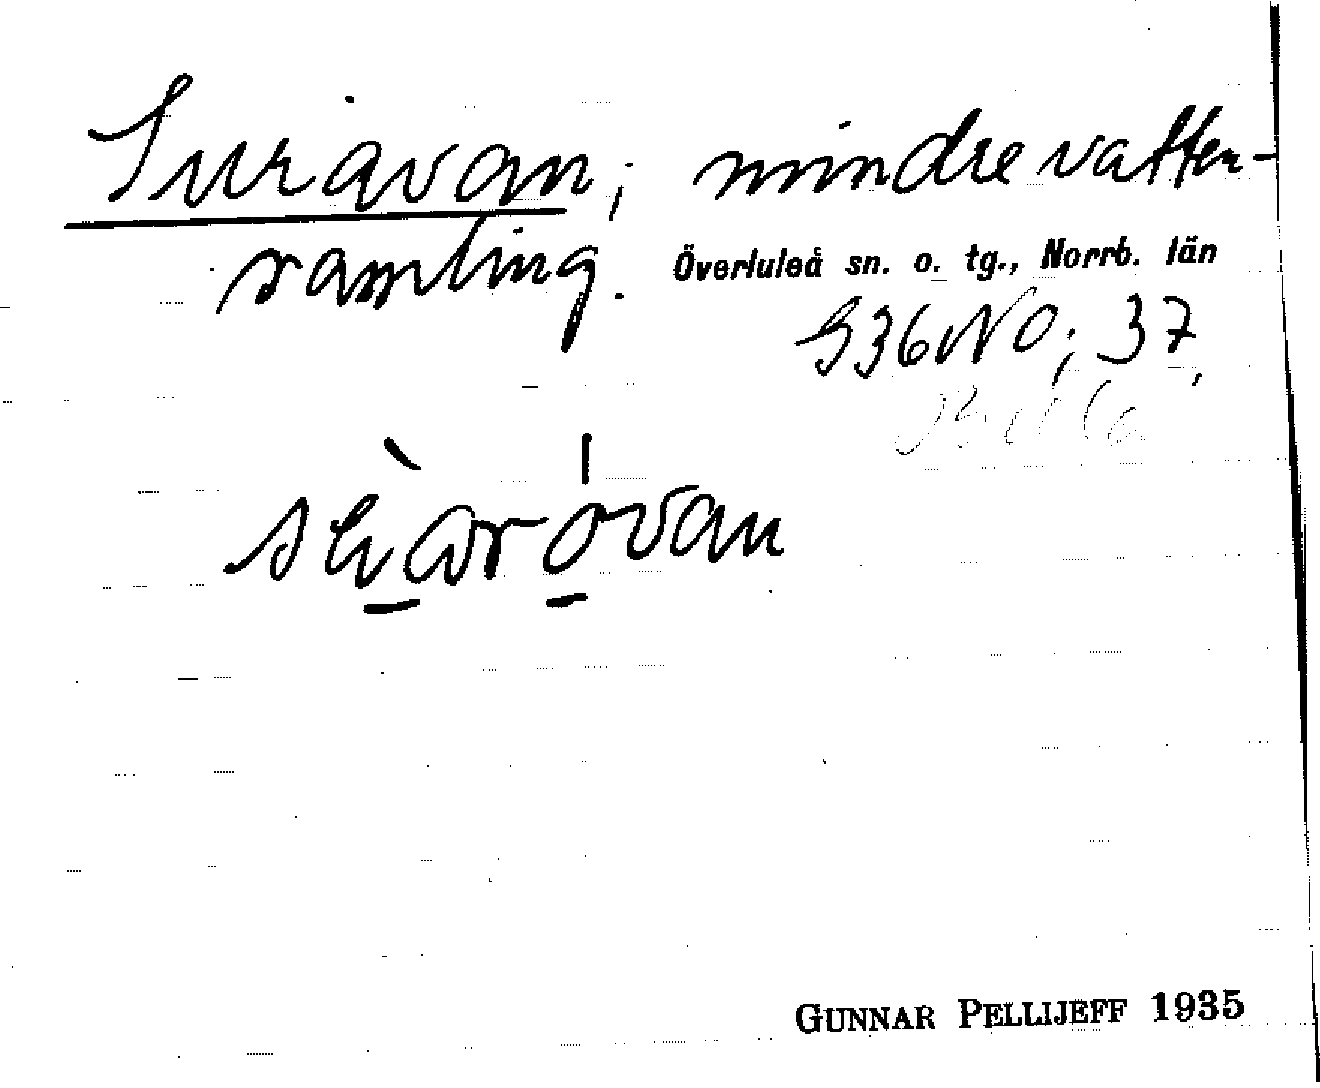 Suravan; mindre vatten-
samling. Överluleå sn. o. tg., Norrb. län
S36NO; 37,
GUNNAR PELLIJEFF 1935